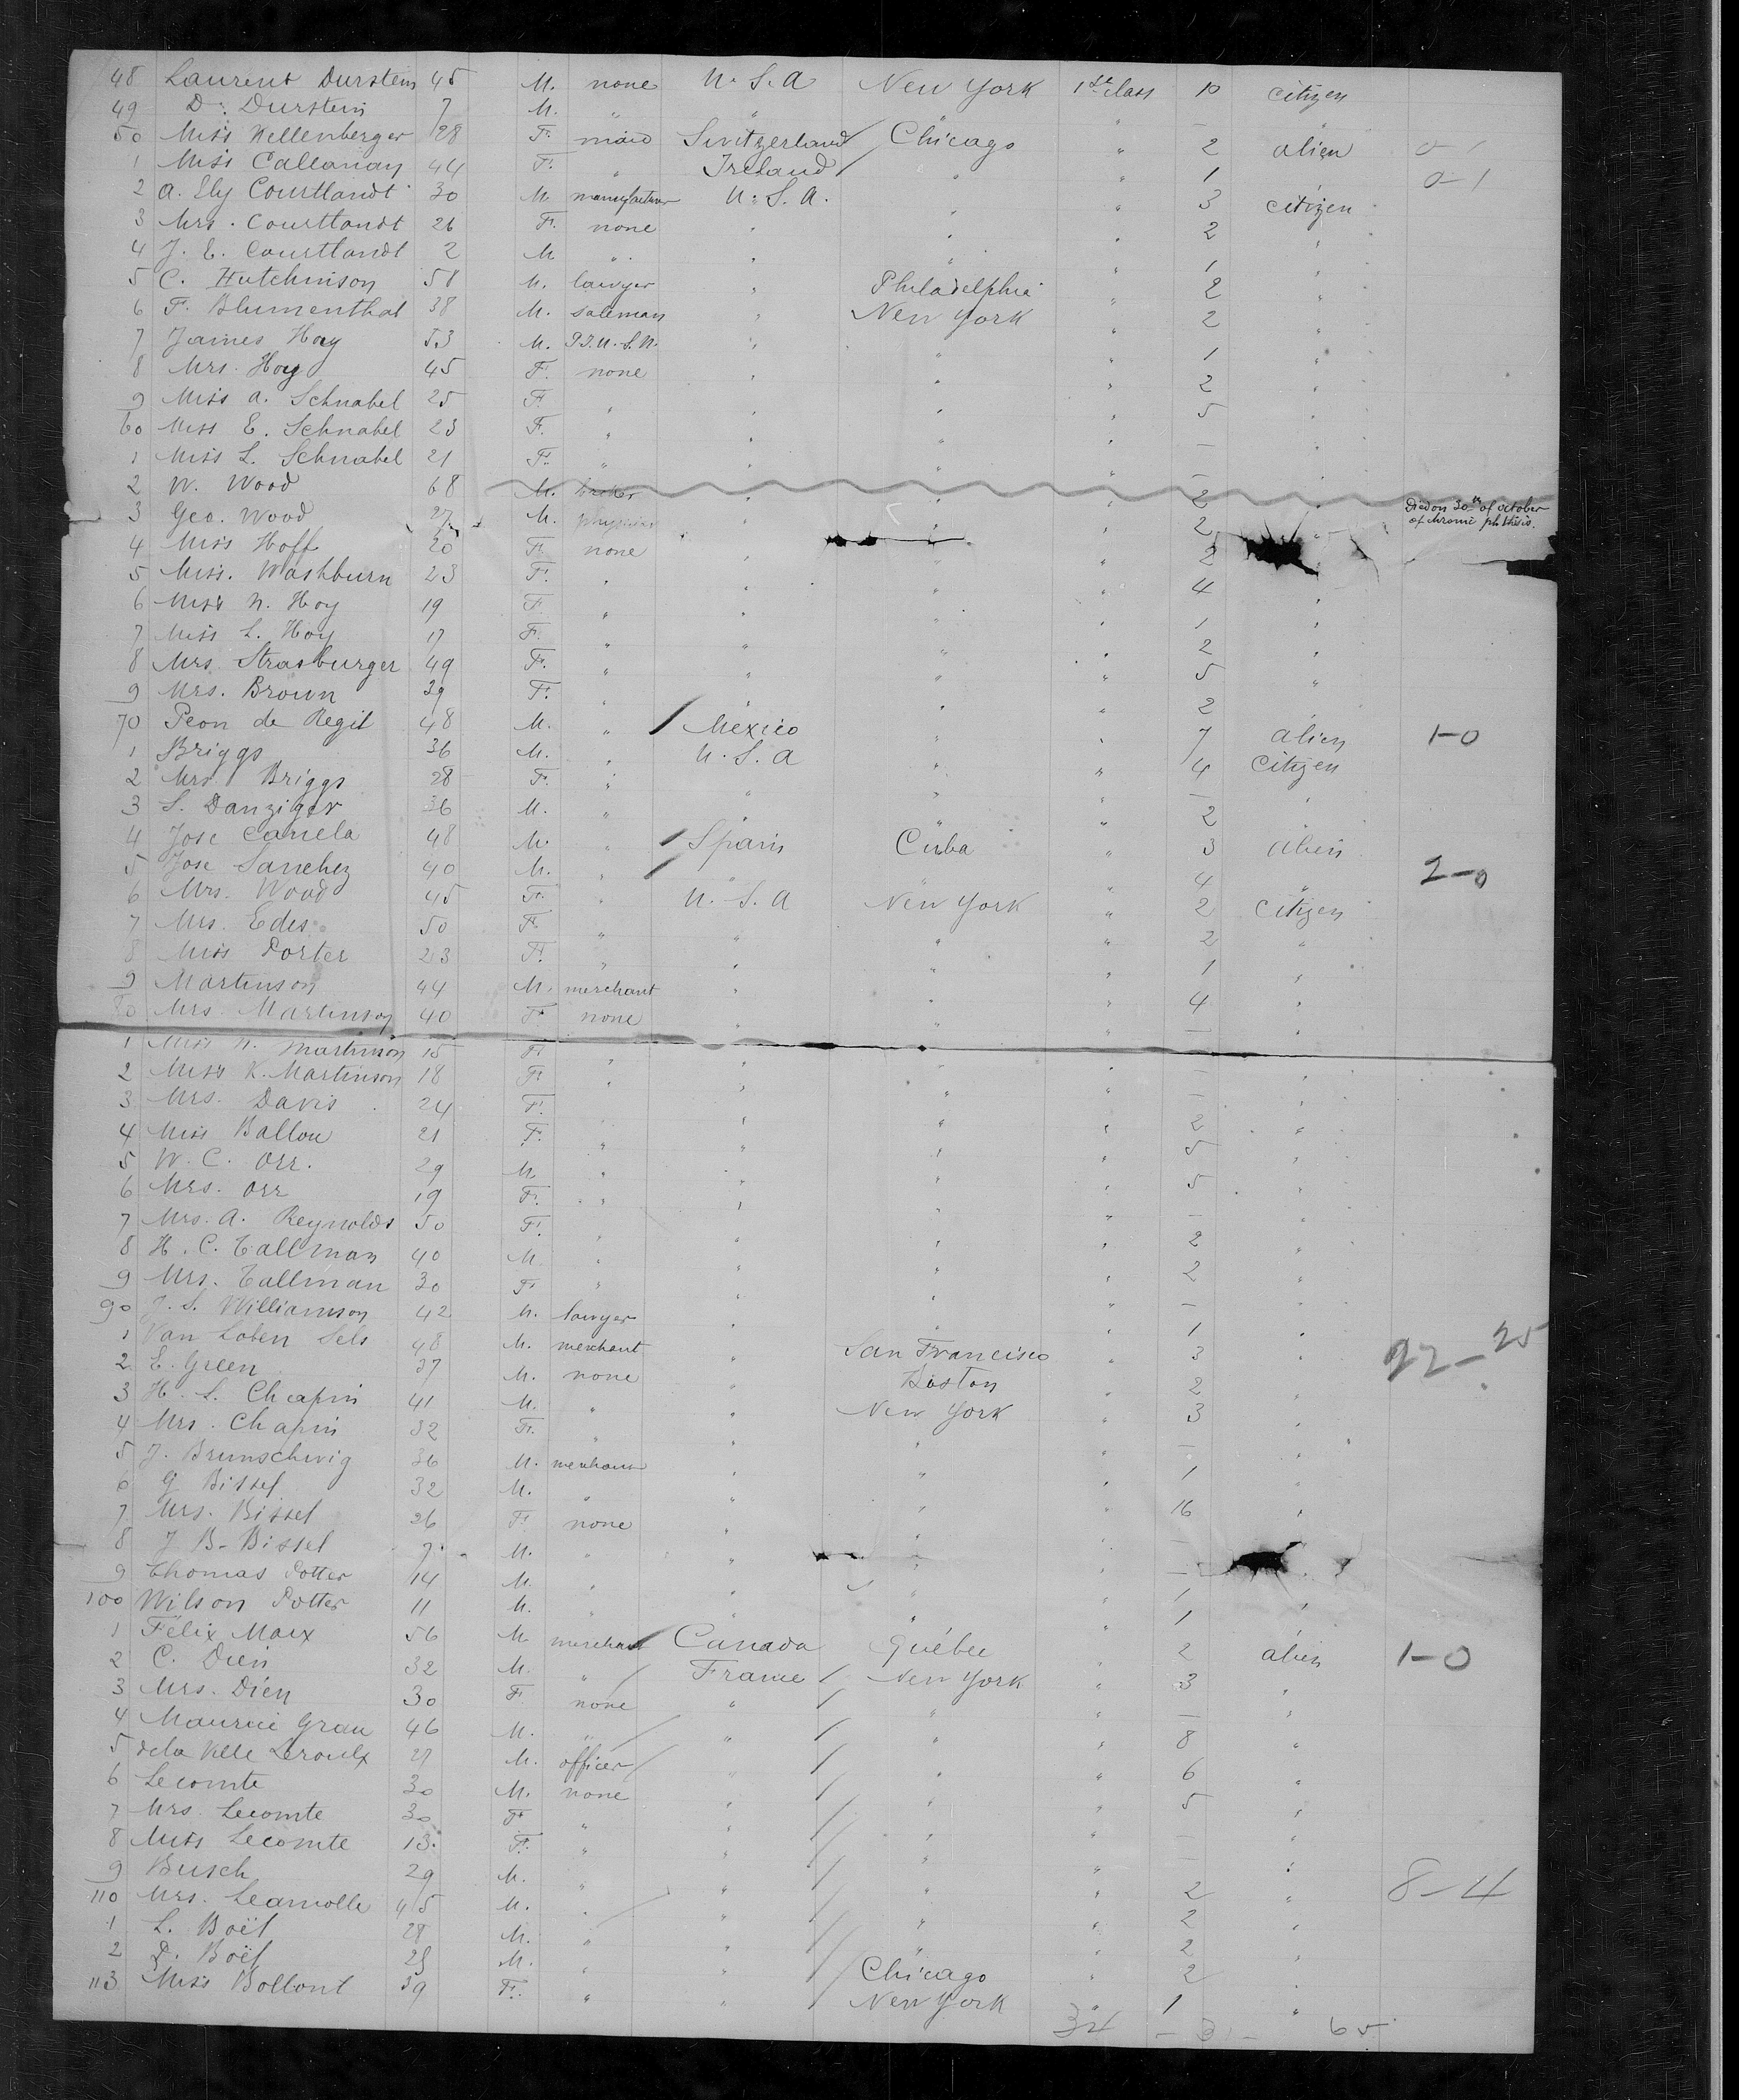 48 Laurent Durstein 45 M. none U.S.A New York 1st class 10 citizen
49 D. Durstein 7 M. " " " " — "
50 Miss Nellenberger 28 F. maid Switzerland / Chicago " 2 alien 0-1
1 Miss Callanan 44 F. " Ireland / " " 1 " 0-1
2 A. Ely Courtlandt 30 M. U.S.A. " " 3 citizen
3 Mrs. Courtlandt 26 F. none " " " 2 "
4 J. E. Courtlandt 2 M " " " " 1 "
5 C. Hutchinson 58 M. lawyer " Philadelphia " 2 "
6 F. Blumenthal 38 M. saleman " New York " 2 "
7 James Hoy 53 M. " " " 1 "
8 Mrs. Hoy 45 F. none " " " 2 "
9 Miss A. Schnabel 25 F. " " " " 5 "
60 Miss E. Schnabel 23 F. " " " " — "
1 Miss L. Schnabel 21 F. " " " " — "
2 W. Wood 68 M. " " " 2 "
3 Geo. Wood 27 M. physician " " " 2 " Died on 30th of october
of chronic phthisis.
4 Miss Hoff 20 F. none " " " 2
5 Miss. Washburn 23 F. " " " " 4 "
6 Miss N. Hoy 19 F. " " " " 1 "
7 Miss L. Hoy 17 F. " " " " 2 "
8 Mrs. Strasburger 49 F. " " " " 5 "
9 Mrs. Brown 39 F. " " " " 2 "
70 Peon de Regil 48 M. " / Mexico " " 7 alien 1-0
1 Briggs 36 M. " U.S.A " " 4 citizen
2 Mrs Briggs 28 F. " " " " — "
3 S. Danziger 36 M. " " " " 2 "
4 Jose Canela 48 M. " / Spain Cuba " 3 alien
5 Jose Sanchez 40 M. " / " " " 4 " 2-0
6 Mrs. Wood 45 F. " U.S.A New York " 2 citizen
7 Mrs. Edes 50 F. " " " " 2 "
8 Miss Porter 23 F. " " " " 1 "
9 Martinson 44 M. merchant " " " 4 "
80 Mrs. Martinson 40 F. none " " " — "
1 Miss N. Martinson 15 F. " " " " — "
2 Miss K. Martinson 18 F. " " " " — "
3 Mrs. Davis 24 F. " " " " 2 "
4 Miss Ballou 21 F. " " " " 5 "
5 W. C. Orr. 29 M " " " " 5 "
6 Mrs. Orr 19 F. " " " " — "
7 Mrs. A. Reynolds 50 F. " " " " 2 "
8 H. C. Tallman 40 M " " " " 2 "
9 Mrs. Tallman 30 F. " " " " — "
90 J. S. Williamson 42 M. lawyer " " " 1 "
1 Van Loben Sels 48 M. merchant " San Francisco " 3 " 22-25
2 E. Green 37 M. none " Boston " 2 "
3 H. S. Chapin 41 M. " " New York " 3 "
4 Mrs. Chapin 32 F. " " " " — "
5 J. Brunschwig 36 M. merchant " " " 1 "
6 G Bissel 32 M. " " " " 16 "
7 Mrs. Bissel 26 F. none " " " —
8 J B. Bissel 7 M. " " " " —
9 Thomas Potter 14 M. " " " " 1 "
100 Wilson Potter 11 M. " " " " 1 "
1 Félix Marx 56 M merchant / Canada Québec " 2 alien 1-0
2 C. Dien 32 M. " / France / New York " 3 "
3 Mrs. Dien 30 F. none " / " " — "
4 Maurice Grau 46 M. " / " / " " 8 "
5 27 M. officer / " / " " 6 "
6 Lecomte 30 M. none " / " " 5 "
7 Mrs. Lecomte 30 F. " " / " " — "
8 Miss Lecomte 13. F. " " / " " — "
9 Busch 29 M. " " / " " 2 " 8-4
110 Mrs. 45 M. " / " / " " 2 "
1 L. Boël 28 M. " " / " " 2 "
2 Boël 25 M. " " / Chicago " 2 "
113 Miss Bollont 39 F. " " / New York " 1 "
34 - 31 - 65